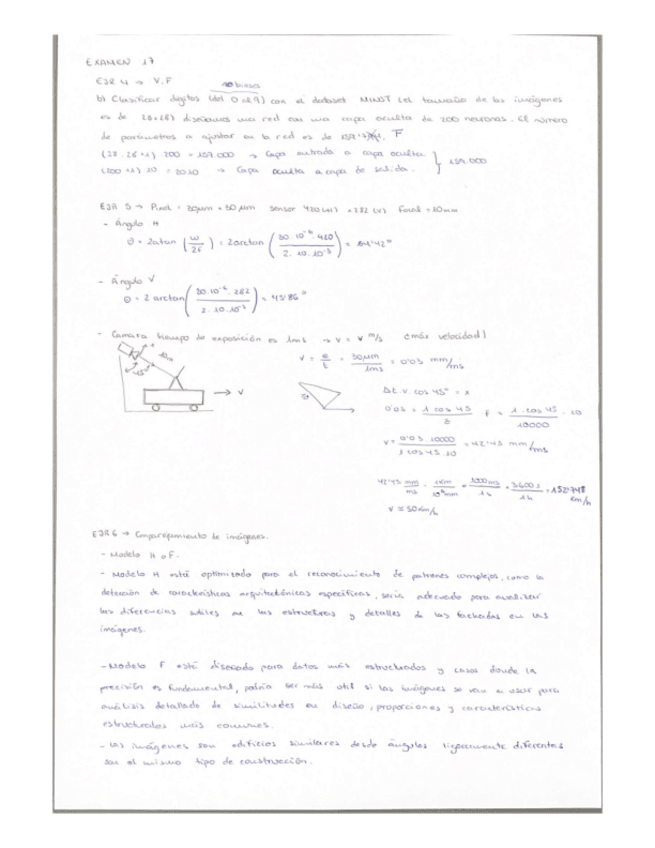 EXAMEN 17
EJR 4 → V, F
b) Clasificar dígitos (del 0 al 9) con el dataset MNIST (el tamaño de las imágenes
es de 28x28) diseñamos una red con una capa oculta de 200 neuronas. El número
de parámetros a ajustar en la red es de F
(28·28+1) 200 = 157.000 → Capa entrada a capa oculta
(200+1) 10 = 2010 → Capa oculta a capa de salida.
159.000
EJR 5 → Pixel = 30µm × 30µm sensor 420 (H) × 282 (V) Focal = 10mm
- Ángulo H
θ = 2atan (W/2f) = 2arctan (30·10⁻⁶·420 / 2·10·10⁻³) = 64'42°
- Ángulo V
θ = 2 arctan (30·10⁻⁶·282 / 2·10·10⁻³) = 45'86°
- Camara tiempo de exposición es 1ms → v = v m/s ¿más velocidad?
10m
45°
→ v
v = e/t = 30µm/1ms = 0'03 mm/ms
Δt.v. cos 45° = x
0'03 = 1 cos 45 / z · f = 1·cos 45 / 10000 · 10
v = 0'03·10000 / 1 cos 45·10 = 42'43 mm/ms
42'43 mm/ms · 1km/10⁶mm · 1000ms/1s · 3600s/1h = 152'748 km/h
v ≈ 50km/h
EJR 6 → Emparejamiento de imágenes.
- Modelo H o F.
- Modelo H está optimizado para el reconocimiento de patrones complejos, como la
detección de características arquitectónicas específicas, sería adecuado para analizar
las diferencias sutiles en las estructuras y detalles de las fachadas en las
imágenes.
- Modelo F está diseñado para datos más estructurados y casos donde la
precisión es fundamental, podría ser más útil si las imágenes se van a usar para
análisis detallado de similitudes en diseño, proporciones y características
estructurales más comunes.
- Las imágenes son edificios similares desde ángulos ligeramente diferentes
son al mismo tipo de construcción.